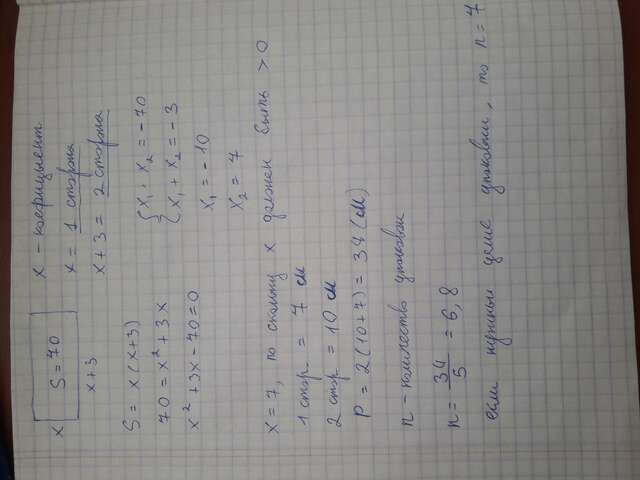 x S=70 x - коефицыент
x+3 x = 1 сторона
x+3 = 2 сторона
S = x(x+3)
70 = x² + 3x
x² + 3x - 70 = 0
{ x₁ · x₂ = -70
{ x₁ + x₂ = -3
x₁ = -10
x₂ = 7
x = 7, по скольку x должен быть > 0
1 стор = 7 см
2 стор = 10 см
P = 2(10+7) = 34 (см)
n - количество упаковок
n = 34/5 = 6,8
если нужны целые упаковки, то n = 7